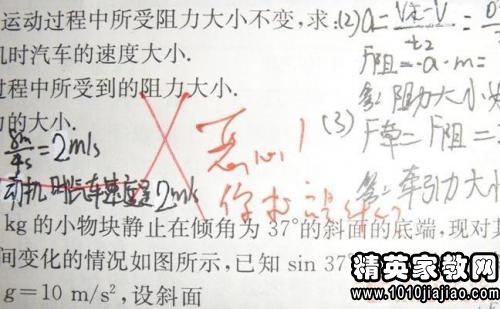 运动过程中所受阻力大小不变,求:(2) a=(Vt-V)/t2=
机时汽车的速度大小.
F阻=-a·m=
过程中所受到的阻力大小.
答: 阻力大小
力的大小.
(3) F牵=F阻=
8m/4s=2m/s
恶心!
动机时汽车速度是2m/s
答: 牵引力大小
kg的小物块静止在倾角为37°的斜面的底端,现对其
间变化的情况如图所示,已知 sin 37°
g=10 m/s²,设斜面
精英家教网
www.1010jiajiao.com